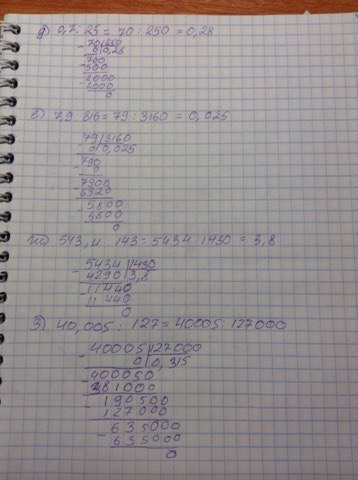 д) 0,7 : 25 = 70 : 250 = 0,28
70 | 250
0 | 0,28
700
500
2000
2000
0
е) 7,9 : 316 = 79 : 3160 = 0,025
79 | 3160
0 | 0,025
790
0
7900
6320
5800
5800
0
ж) 543,4 143 = 5434 : 1430 = 3,8
5434 | 1430
4290 | 3,8
11440
11440
0
з) 40,005 : 127 = 40005 : 127000
40005 | 127000
0 | 0,315
400050
381000
190500
127000
635000
635000
0